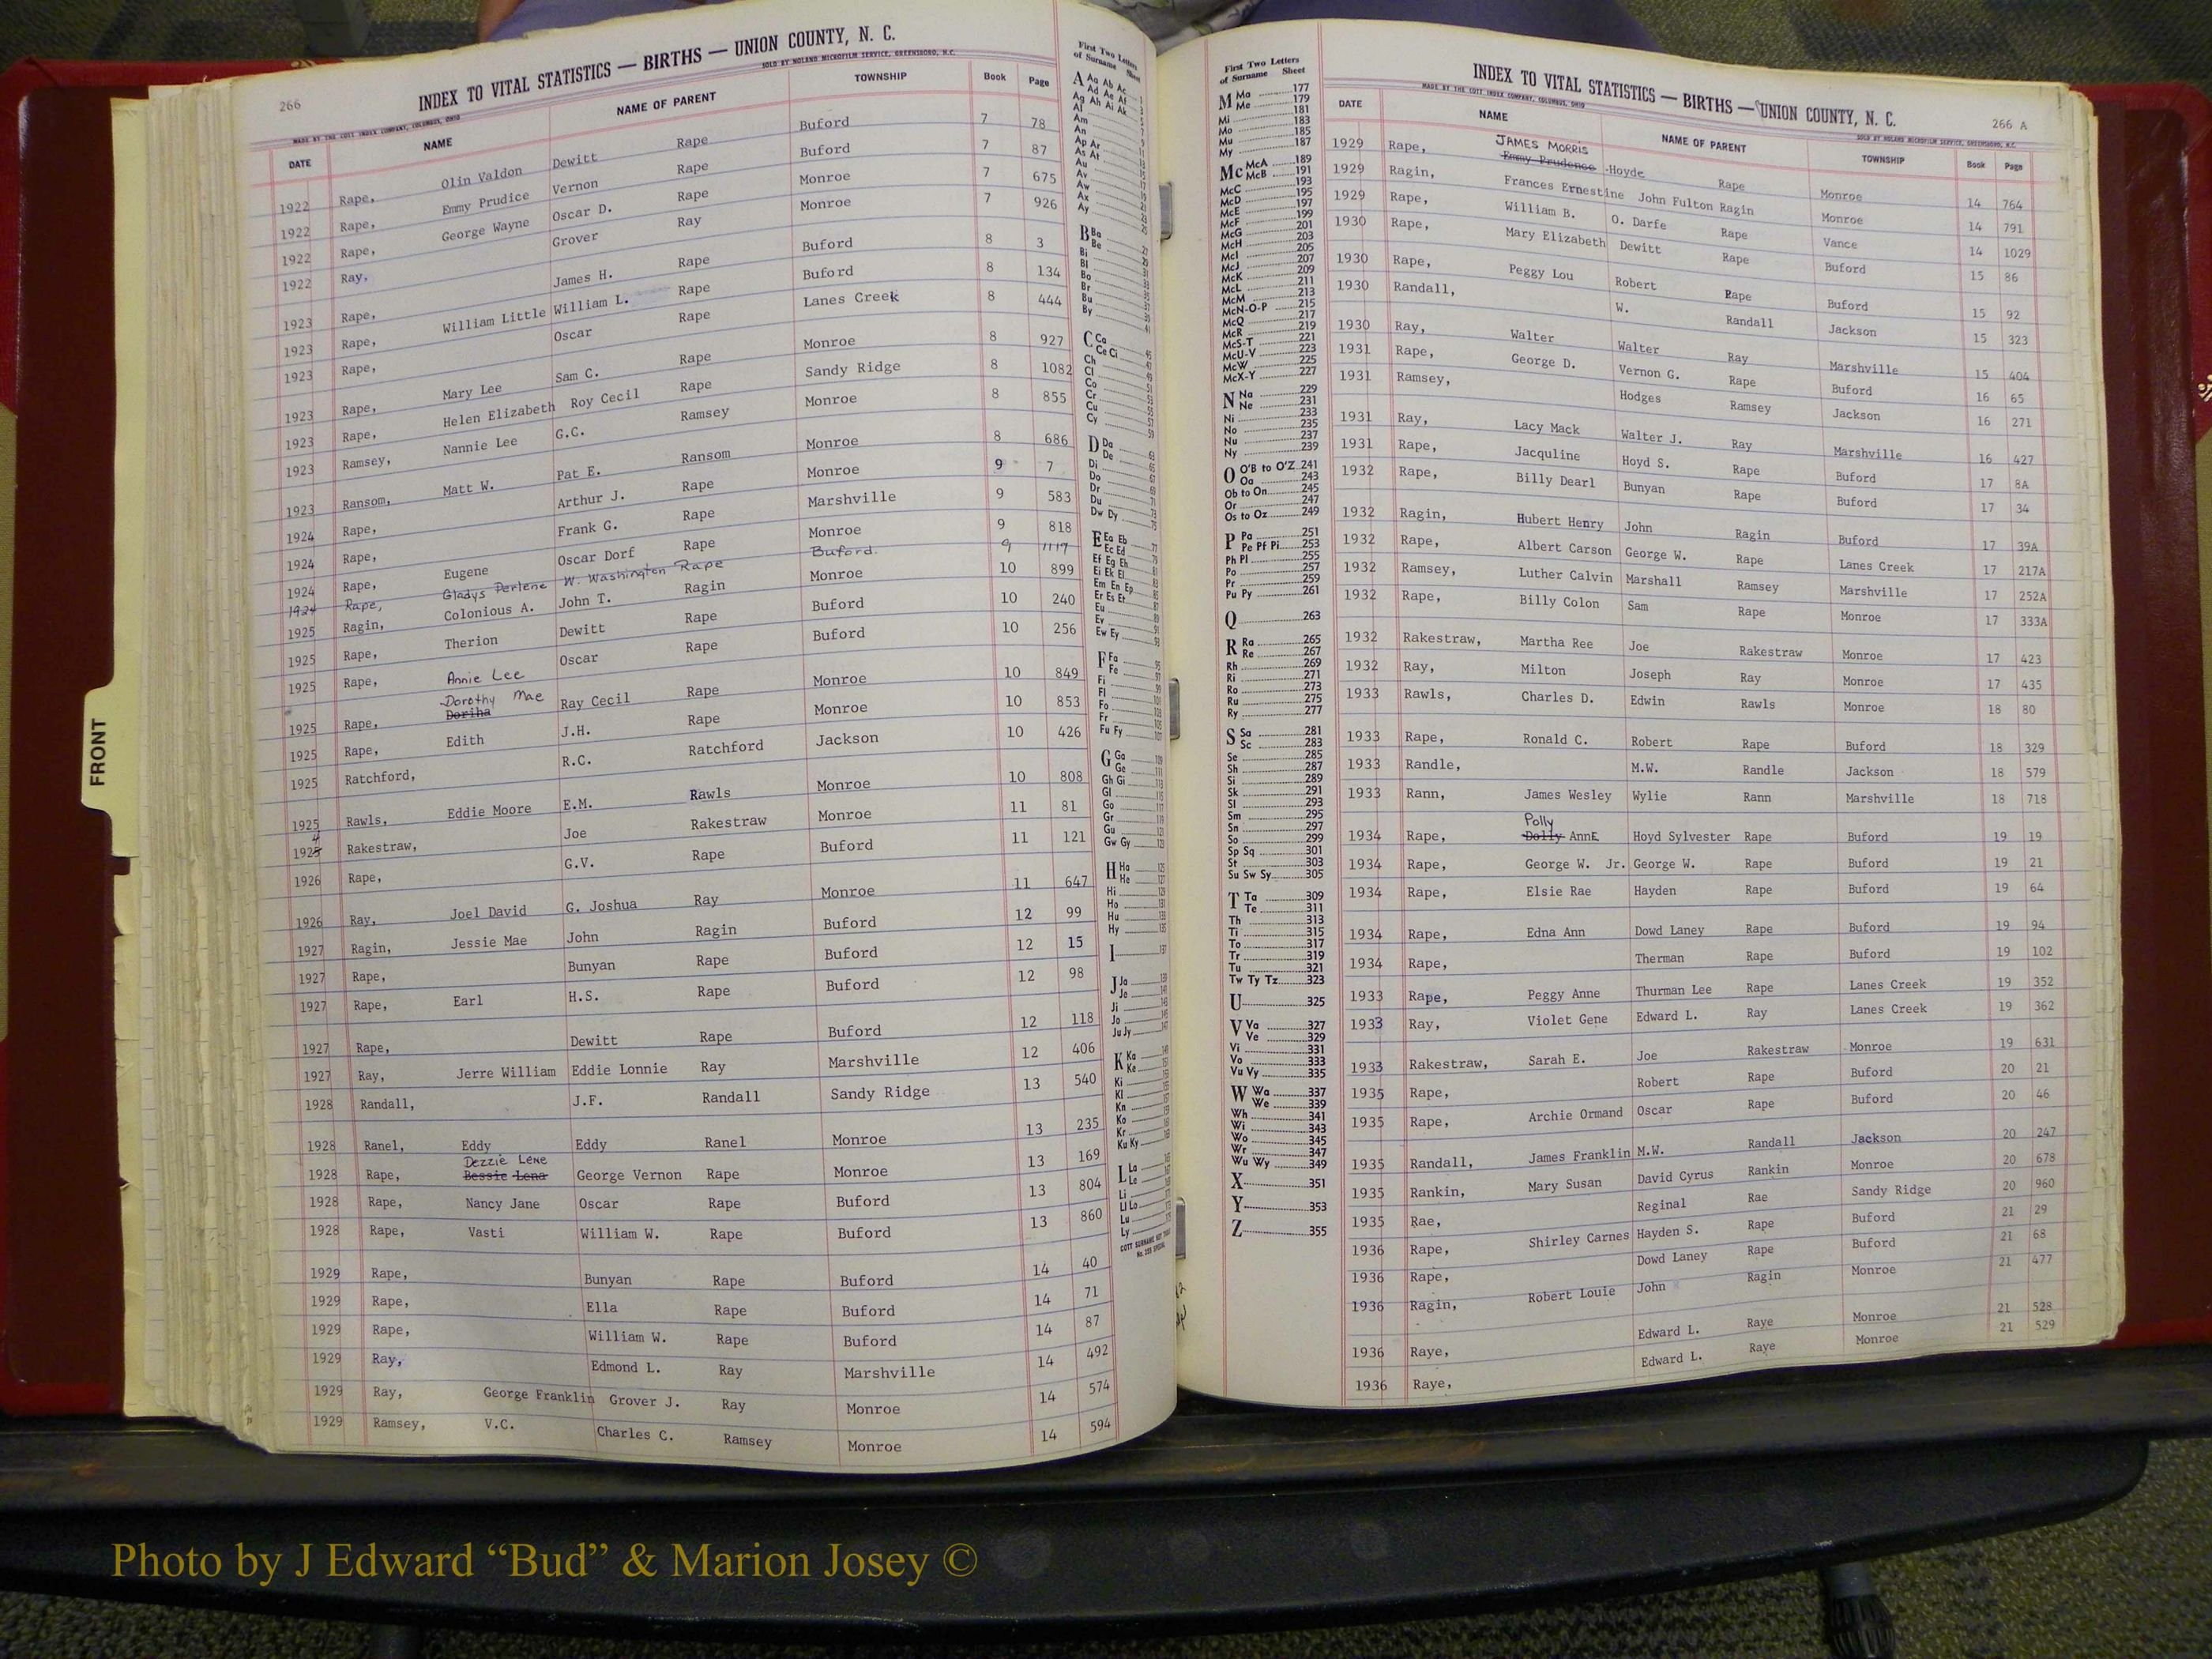 266
INDEX TO VITAL STATISTICS — BIRTHS — UNION COUNTY, N. C.
MADE BY THE COTT INDEX COMPANY, COLUMBUS, OHIO SOLD BY NOLAND MICROFILM SERVICE, GREENSBORO, N.C.
DATE NAME NAME OF PARENT TOWNSHIP Book Page
1922 Rape, Olin Valdon Dewitt Rape Buford 7 78
1922 Rape, Emmy Prudice Vernon Rape Buford 7 87
1922 Rape, George Wayne Oscar D. Rape Monroe 7 675
1922 Ray, Grover Ray Monroe 7 926
1923 Rape, James H. Rape Buford 8 3
1923 Rape, William Little William L. Rape Buford 8 134
1923 Rape, Oscar Rape Lanes Creek 8 444
1923 Rape, Mary Lee Sam C. Rape Monroe 8 927
1923 Rape, Helen Elizabeth Roy Cecil Rape Sandy Ridge 8 1082
1923 Ramsey, Nannie Lee G.C. Ramsey Monroe 8 855
1923 Ransom, Matt W. Pat E. Ransom Monroe 8 686
1924 Rape, Arthur J. Rape Monroe 9 7
1924 Rape, Frank G. Rape Marshville 9 583
1924 Rape, Eugene Oscar Dorf Rape Monroe 9 818
1924 Rape, Gladys Perlene W. Washington Rape Buford 9 1117
1925 Ragin, Colonious A. John T. Ragin Monroe 10 899
1925 Rape, Therion Dewitt Rape Buford 10 240
1925 Rape, Annie Lee Oscar Rape Buford 10 256
Dorothy Mae
1925 Rape, Doriha Ray Cecil Rape Monroe 10 849
1925 Rape, Edith J.H. Rape Monroe 10 853
1925 Ratchford, R.C. Ratchford Jackson 10 426
1925 Rawls, Eddie Moore E.M. Rawls Monroe 10 808
4
1925 Rakestraw, Joe Rakestraw Monroe 11 81
1926 Rape, G.V. Rape Buford 11 121
1926 Ray, Joel David G. Joshua Ray Monroe 11 647
1927 Ragin, Jessie Mae John Ragin Buford 12 99
1927 Rape, Bunyan Rape Buford 12 15
1927 Rape, Earl H.S. Rape Buford 12 98
1927 Rape, Dewitt Rape Buford 12 118
1927 Ray, Jerre William Eddie Lonnie Ray Marshville 12 406
1928 Randall, J.F. Randall Sandy Ridge 13 540
1928 Ranel, Eddy Eddy Ranel Monroe 13 235
Dezzie Lene
1928 Rape, Bessie Lena George Vernon Rape Monroe 13 169
1928 Rape, Nancy Jane Oscar Rape Buford 13 804
1928 Rape, Vasti William W. Rape Buford 13 860
1929 Rape, Bunyan Rape Buford 14 40
1929 Rape, Ella Rape Buford 14 71
1929 Rape, William W. Rape Buford 14 87
1929 Ray, Edmond L. Ray Marshville 14 492
1929 Ray, George Franklin Grover J. Ray Monroe 14 574
1929 Ramsey, V.C. Charles C. Ramsey Monroe 14 594
FRONT
First Two Letters
of Surname Sheet
A Aa Ab Ac
Ad Ae Af
Ag Ah Ai Ak
Al
Am
An
Ap Ar
As At
Au
Av
Aw
Ax
Ay
B Ba
Be
Bi
Bl
Bo
Br
Bu
By
C Ca
Ce Ci
Ch
Cl
Co
Cr
Cu
Cy
D Da
De
Di
Do
Dr
Du
Dw Dy
E Ea Eb
Ec Ed
Ef Eg Eh
Ei Ek El
Em En Ep
Er Es Et
Eu
Ev
Ew Ey
F Fa
Fe
Fi
Fl
Fo
Fr
Fu Fy
G Ga
Ge
Gh Gi
Gl
Go
Gr
Gu
Gw Gy
H Ha
He
Hi
Ho
Hu
Hy
I
J Ja
Je
Ji
Jo
Ju Jy
K Ka
Ke
Ki
Kl
Kn
Ko
Kr
Ku Ky
L La
Le
Li
Ll Lo
Lu
Ly
First Two Letters
of Surname Sheet
M Ma 177
Me 179
Mi 181
Mo 183
Mu 185
My 187
Mc McA 189
McB 191
McC 193
McD 195
McE 197
McF 199
McG 201
McH 203
McI 205
McJ 207
McK 209
McL 211
McM 213
McN-O-P 215
McQ 217
McR 219
McS-T 221
McU-V 223
McW 225
McX-Y 227
N Na 229
Ne 231
Ni 233
No 235
Nu 237
Ny 239
O O'B to O'Z 241
Oa 243
Ob to On 245
Or 247
Os to Oz 249
P Pa 251
Pe Pf Pi 253
Ph Pl 255
Po 257
Pr 259
Pu Py 261
Q 263
R Ra 265
Re 267
Rh 269
Ri 271
Ro 273
Ru 275
Ry 277
S Sa 281
Sc 283
Se 285
Sh 287
Si 289
Sk 291
Sl 293
Sm 295
Sn 297
So 299
Sp Sq 301
St 303
Su Sw Sy 305
T Ta 309
Te 311
Th 313
Ti 315
To 317
Tr 319
Tu 321
Tw Ty Tz 323
U 325
V Va 327
Ve 329
Vi 331
Vo 333
Vu Vy 335
W Wa 337
We 339
Wh 341
Wi 343
Wo 345
Wr 347
Wu Wy 349
X 351
Y 353
Z 355
INDEX TO VITAL STATISTICS — BIRTHS — UNION COUNTY, N. C.
266 A
MADE BY THE COTT INDEX COMPANY, COLUMBUS, OHIO SOLD BY NOLAND MICROFILM SERVICE, GREENSBORO, N.C.
DATE NAME NAME OF PARENT TOWNSHIP Book Page
JAMES MORRIS
1929 Rape, Emmy Prudence Hoyde Rape Monroe 14 764
1929 Ragin, Frances Ernestine John Fulton Ragin Monroe 14 791
1929 Rape, William B. O. Darfe Rape Vance 14 1029
1930 Rape, Mary Elizabeth Dewitt Rape Buford 15 86
1930 Rape, Peggy Lou Robert Rape Buford 15 92
1930 Randall, W. Randall Jackson 15 323
1930 Ray, Walter Walter Ray Marshville 15 404
1931 Rape, George D. Vernon G. Rape Buford 16 65
1931 Ramsey, Hodges Ramsey Jackson 16 271
1931 Ray, Lacy Mack Walter J. Ray Marshville 16 427
1931 Rape, Jacquline Hoyd S. Rape Buford 17 8A
1932 Rape, Billy Dearl Bunyan Rape Buford 17 34
1932 Ragin, Hubert Henry John Ragin Buford 17 39A
1932 Rape, Albert Carson George W. Rape Lanes Creek 17 217A
1932 Ramsey, Luther Calvin Marshall Ramsey Marshville 17 252A
1932 Rape, Billy Colon Sam Rape Monroe 17 333A
1932 Rakestraw, Martha Ree Joe Rakestraw Monroe 17 423
1932 Ray, Milton Joseph Ray Monroe 17 435
1933 Rawls, Charles D. Edwin Rawls Monroe 18 80
1933 Rape, Ronald C. Robert Rape Buford 18 329
1933 Randle, M.W. Randle Jackson 18 579
1933 Rann, James Wesley Wylie Rann Marshville 18 718
Polly
1934 Rape, Dolly AnnE Hoyd Sylvester Rape Buford 19 19
1934 Rape, George W. Jr. George W. Rape Buford 19 21
1934 Rape, Elsie Rae Hayden Rape Buford 19 64
1934 Rape, Edna Ann Dowd Laney Rape Buford 19 94
1934 Rape, Therman Rape Buford 19 102
1933 Rape, Peggy Anne Thurman Lee Rape Lanes Creek 19 352
1933 Ray, Violet Gene Edward L. Ray Lanes Creek 19 362
1933 Rakestraw, Sarah E. Joe Rakestraw Monroe 19 631
1935 Rape, Robert Rape Buford 20 21
1935 Rape, Archie Ormand Oscar Rape Buford 20 46
1935 Randall, James Franklin M.W. Randall Jackson 20 247
1935 Rankin, Mary Susan David Cyrus Rankin Monroe 20 678
1935 Rae, Reginal Rae Sandy Ridge 20 960
1936 Rape, Shirley Carnes Hayden S. Rape Buford 21 29
1936 Rape, Dowd Laney Rape Buford 21 68
1936 Ragin, Robert Louie John Ragin Monroe 21 477
1936 Raye, Edward L. Raye Monroe 21 528
1936 Raye, Edward L. Raye Monroe 21 529
Photo by J Edward “Bud” & Marion Josey ©